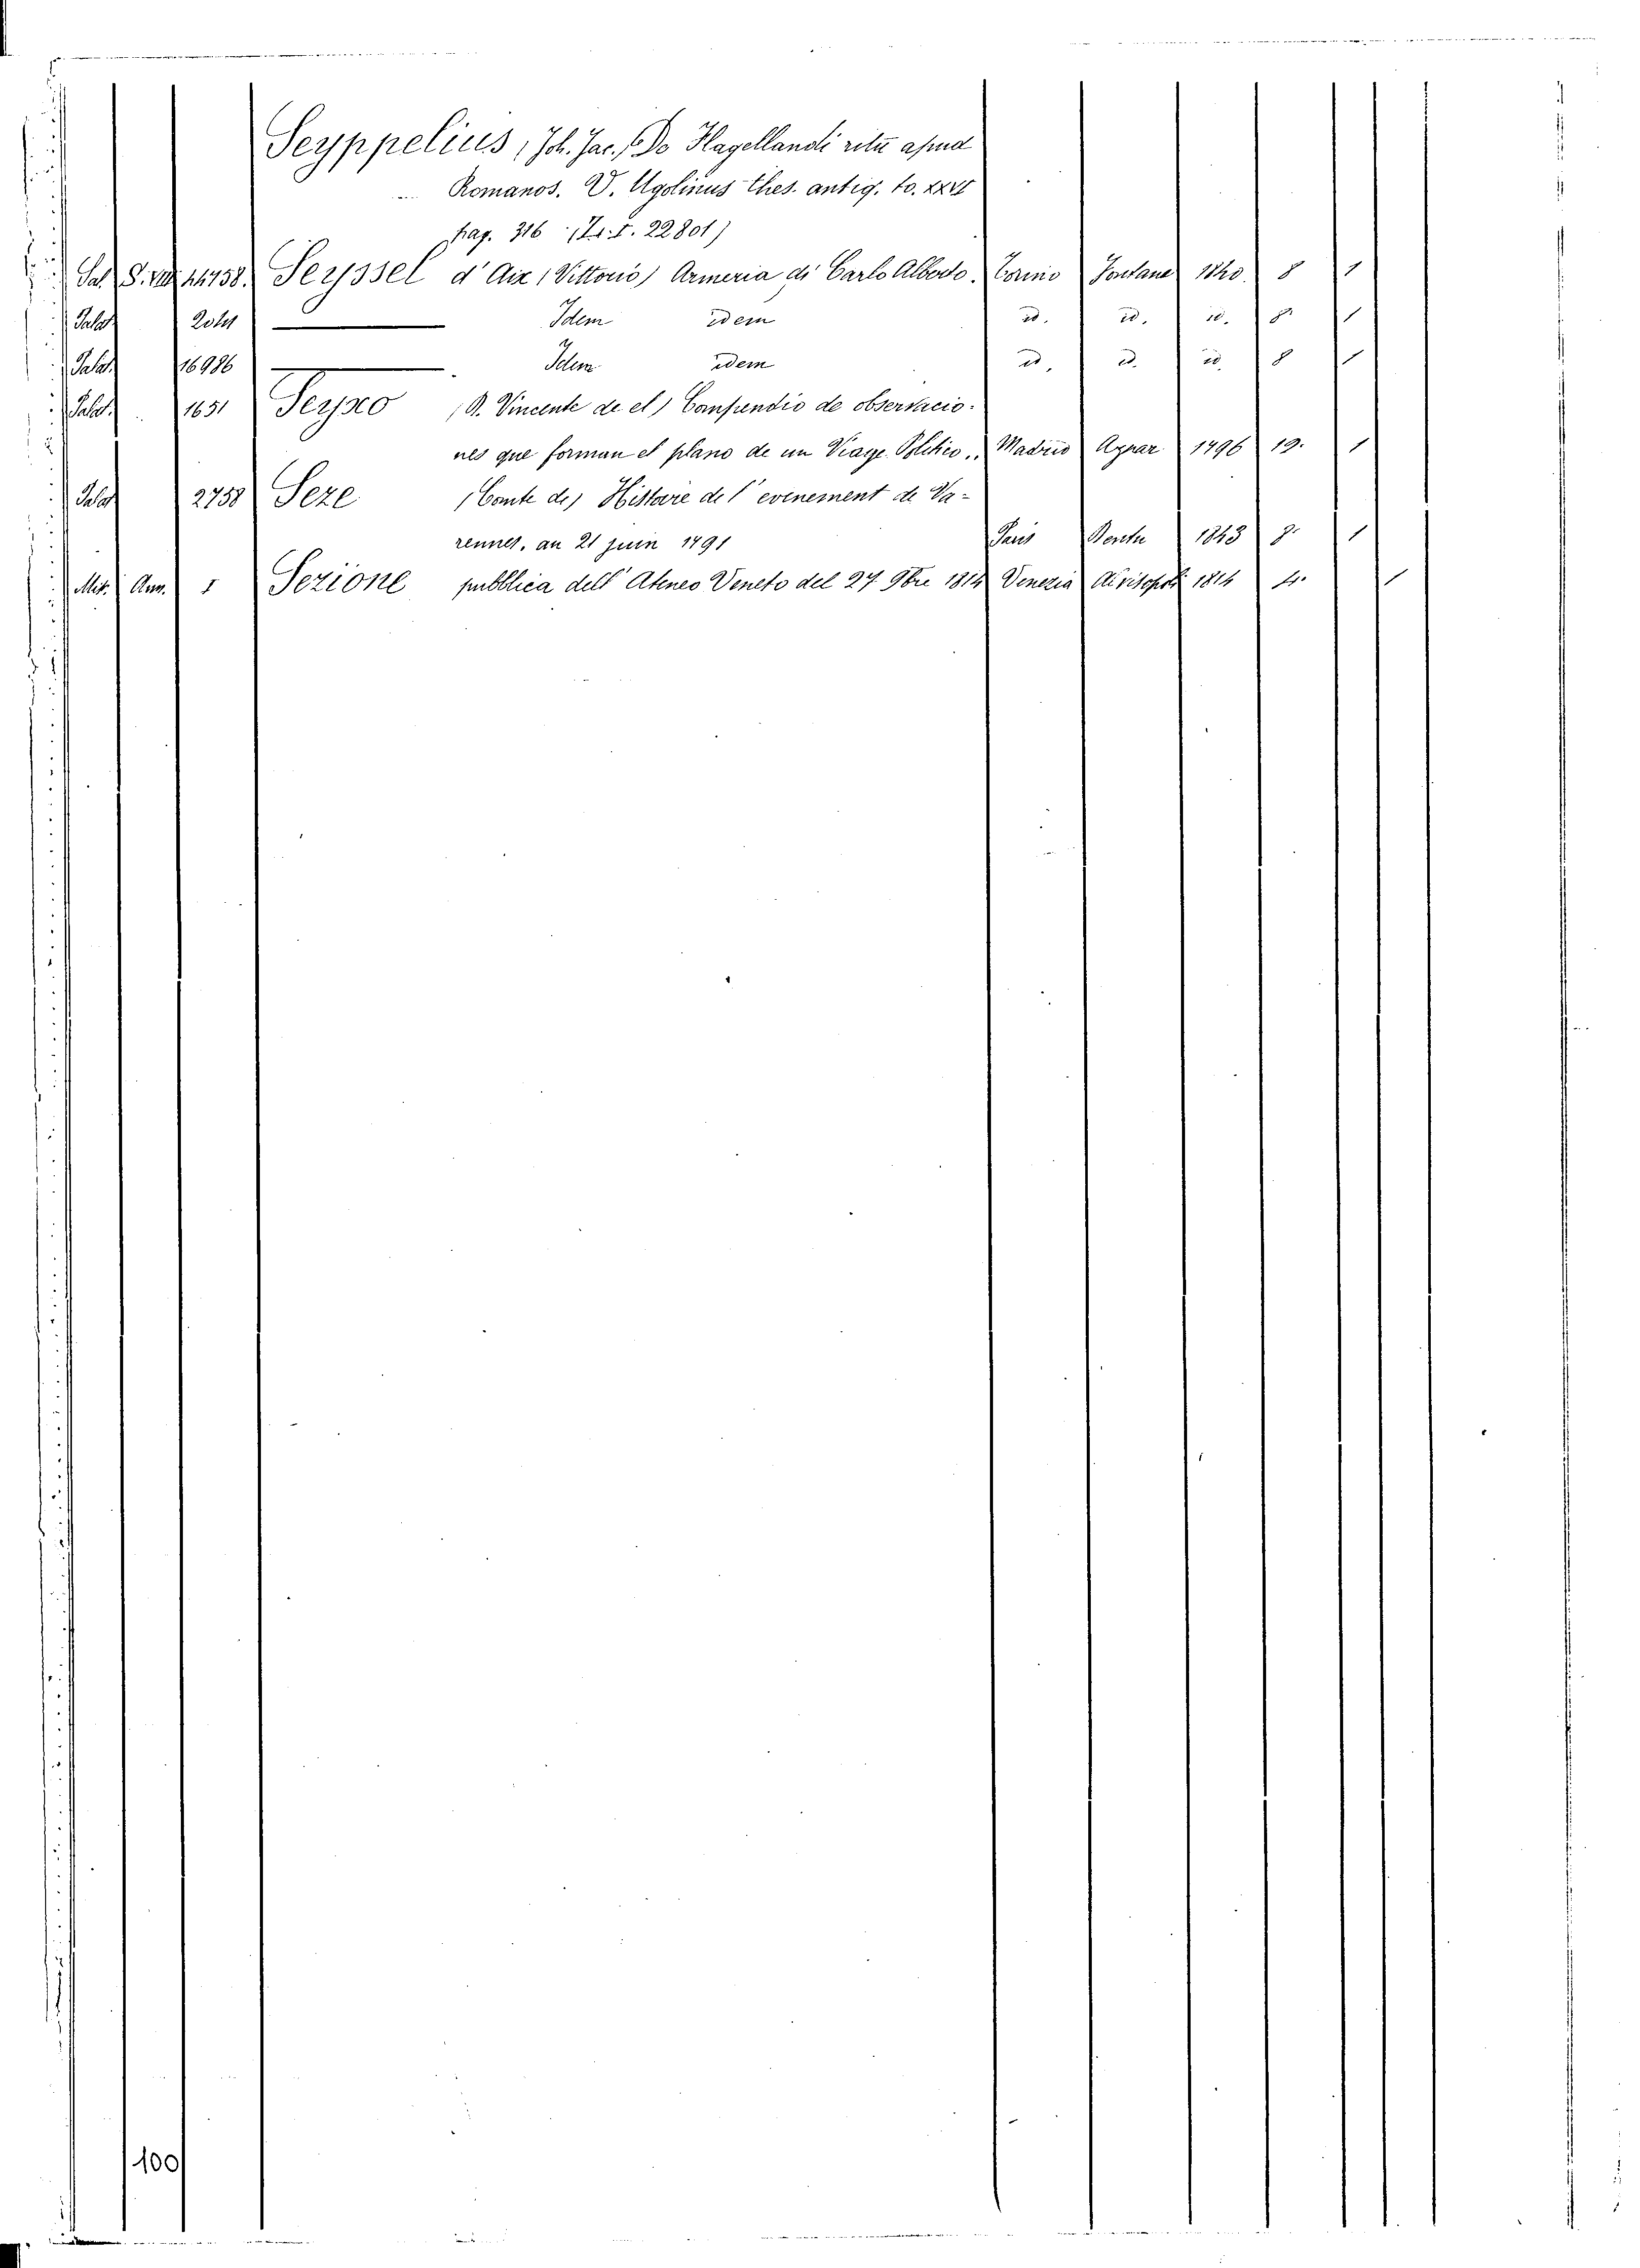 Seyppelius (Joh. Jac.) De Flagellandi ritu apud
Romanos. V. Ugolinus Thes. antiq. to. XXVI
pag. 316
Sal. Seyssel d'Aix (Vittorio) Armeria di Carlo Alberto. Torino Fontana 1840. 8 1
Palat. Idem idem id. id. id. 8 1
Palat. 16986 Idem idem id. id. id. 8 1
Palat. 1651 Seyxo (D. Vincente de el) Conpendio de observacio-
nes que forman el plano de un Viage Politico. Madrid Aznar 1796 12. 1
Palat. 2758 Seze (Comte de) Histoire de l'evenement de Va-
rennes, au 21 juin 1791 Paris Dentu 1843 8. 1
Mis. Ann. 1 Sezione pubblica dell' Ateneo Veneto del 27 9bre 1814 Venezia Alvisopoli 1814 4. 1
100